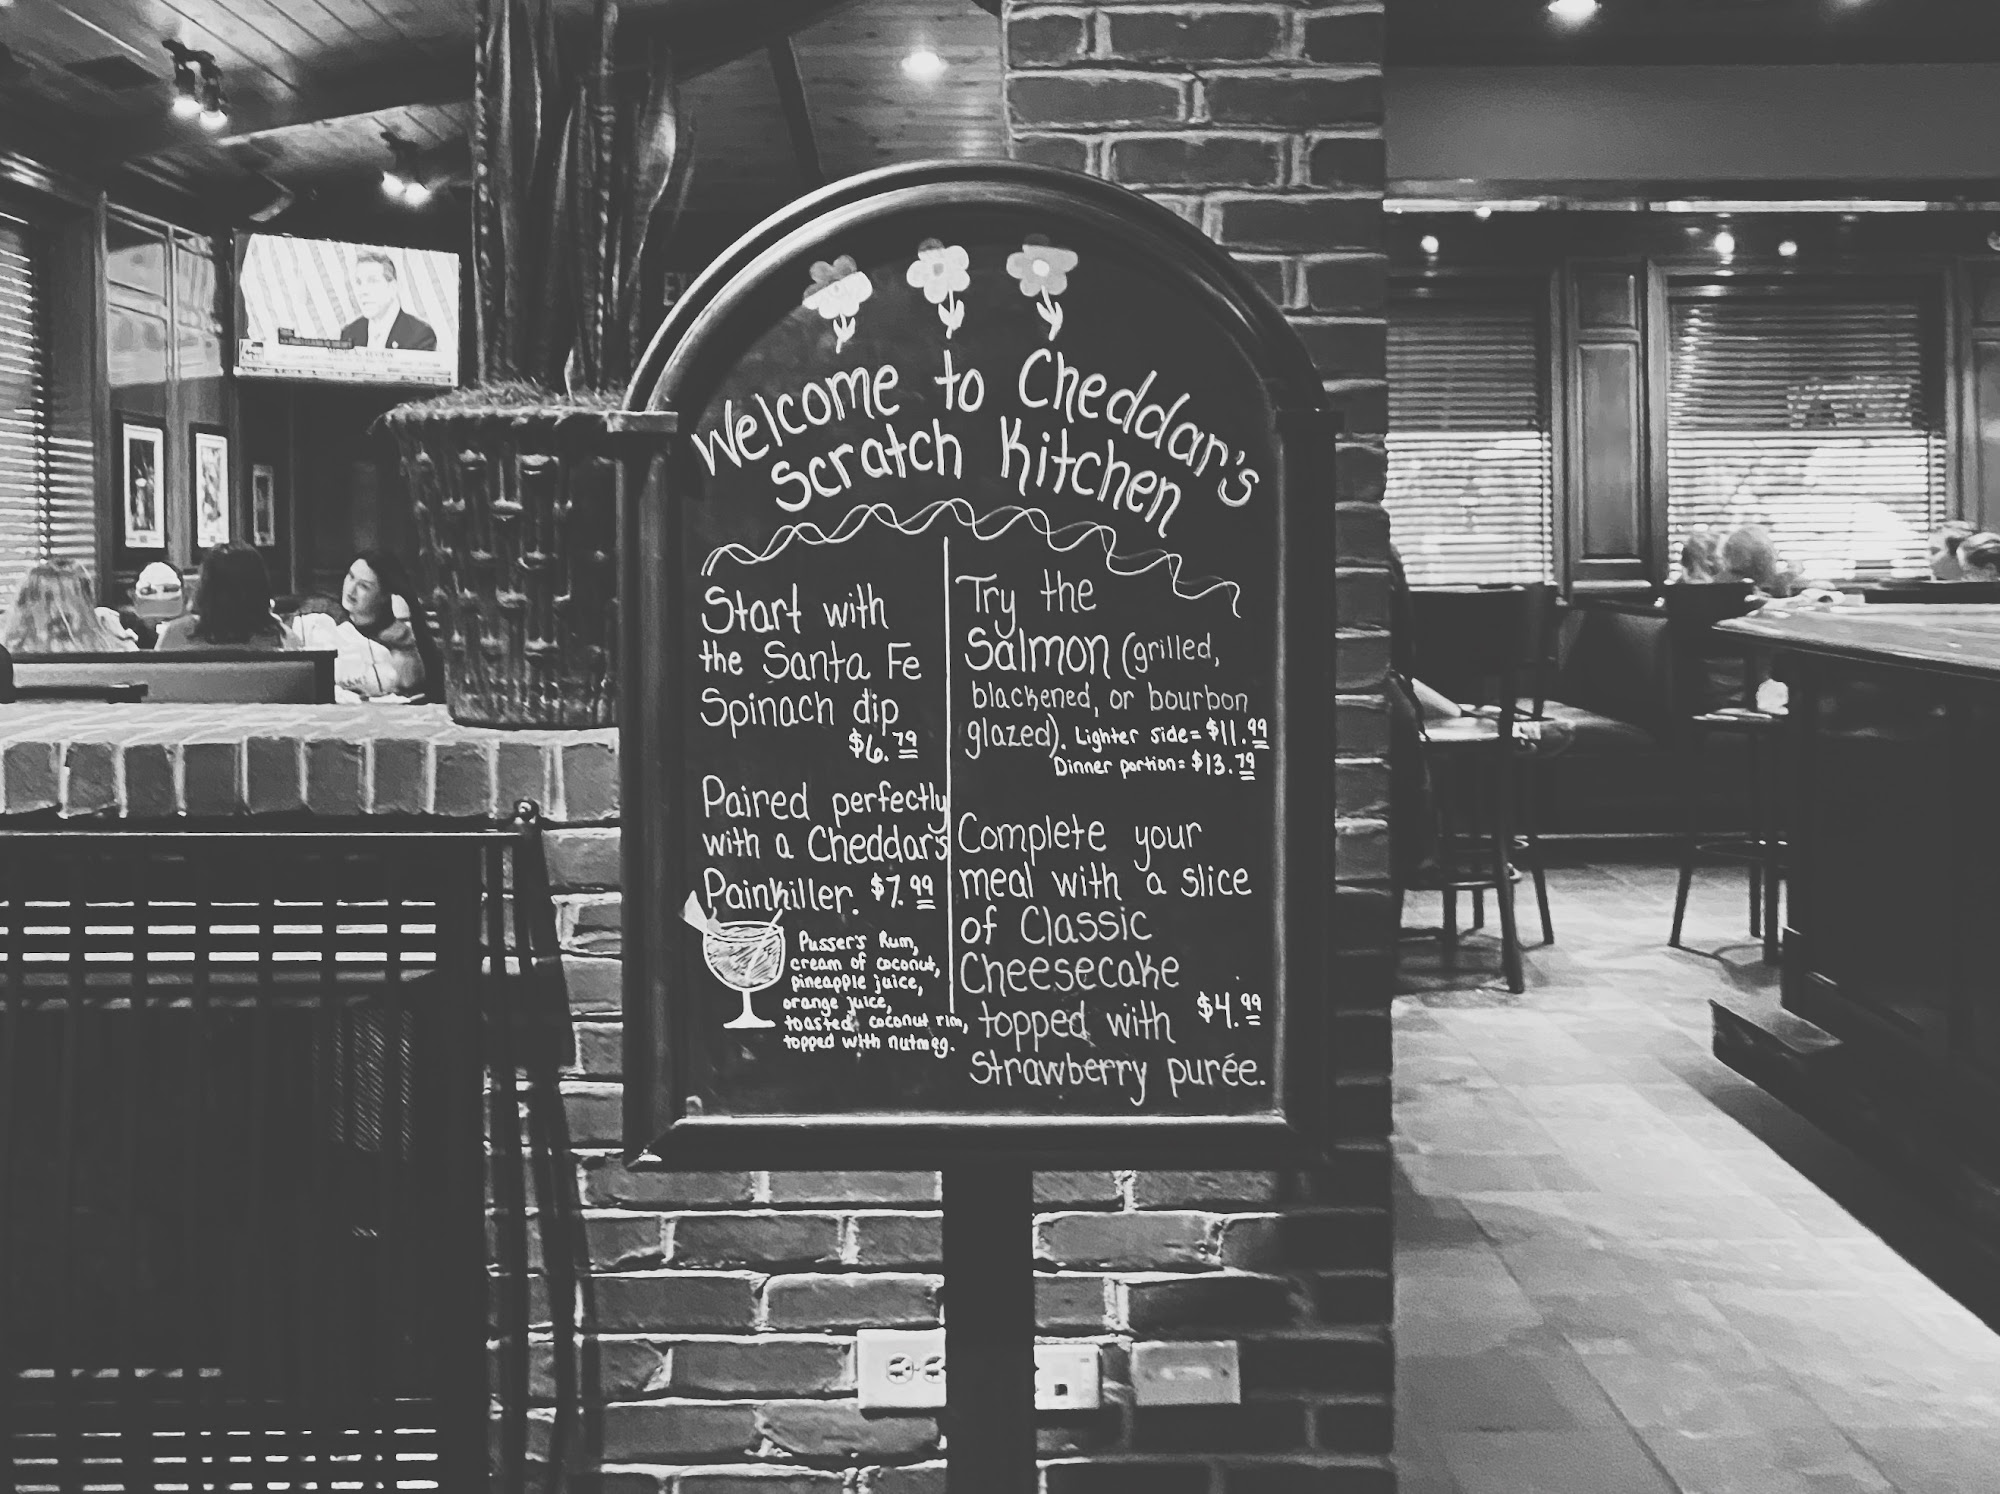 Welcome to Cheddar's
Scratch Kitchen
Start with
the Santa Fe
Spinach dip
$6.79
Paired perfectly
with a Cheddar's
Painkiller. $7.99
Pusser's Rum,
cream of coconut,
pineapple juice,
orange juice,
toasted coconut rim,
topped with nutmeg.
Try the
Salmon (grilled,
blackened, or bourbon
glazed). Lighter side = $11.99
Dinner portion = $13.79
Complete your
meal with a slice
of Classic
Cheesecake
topped with $4.99
Strawberry purée.